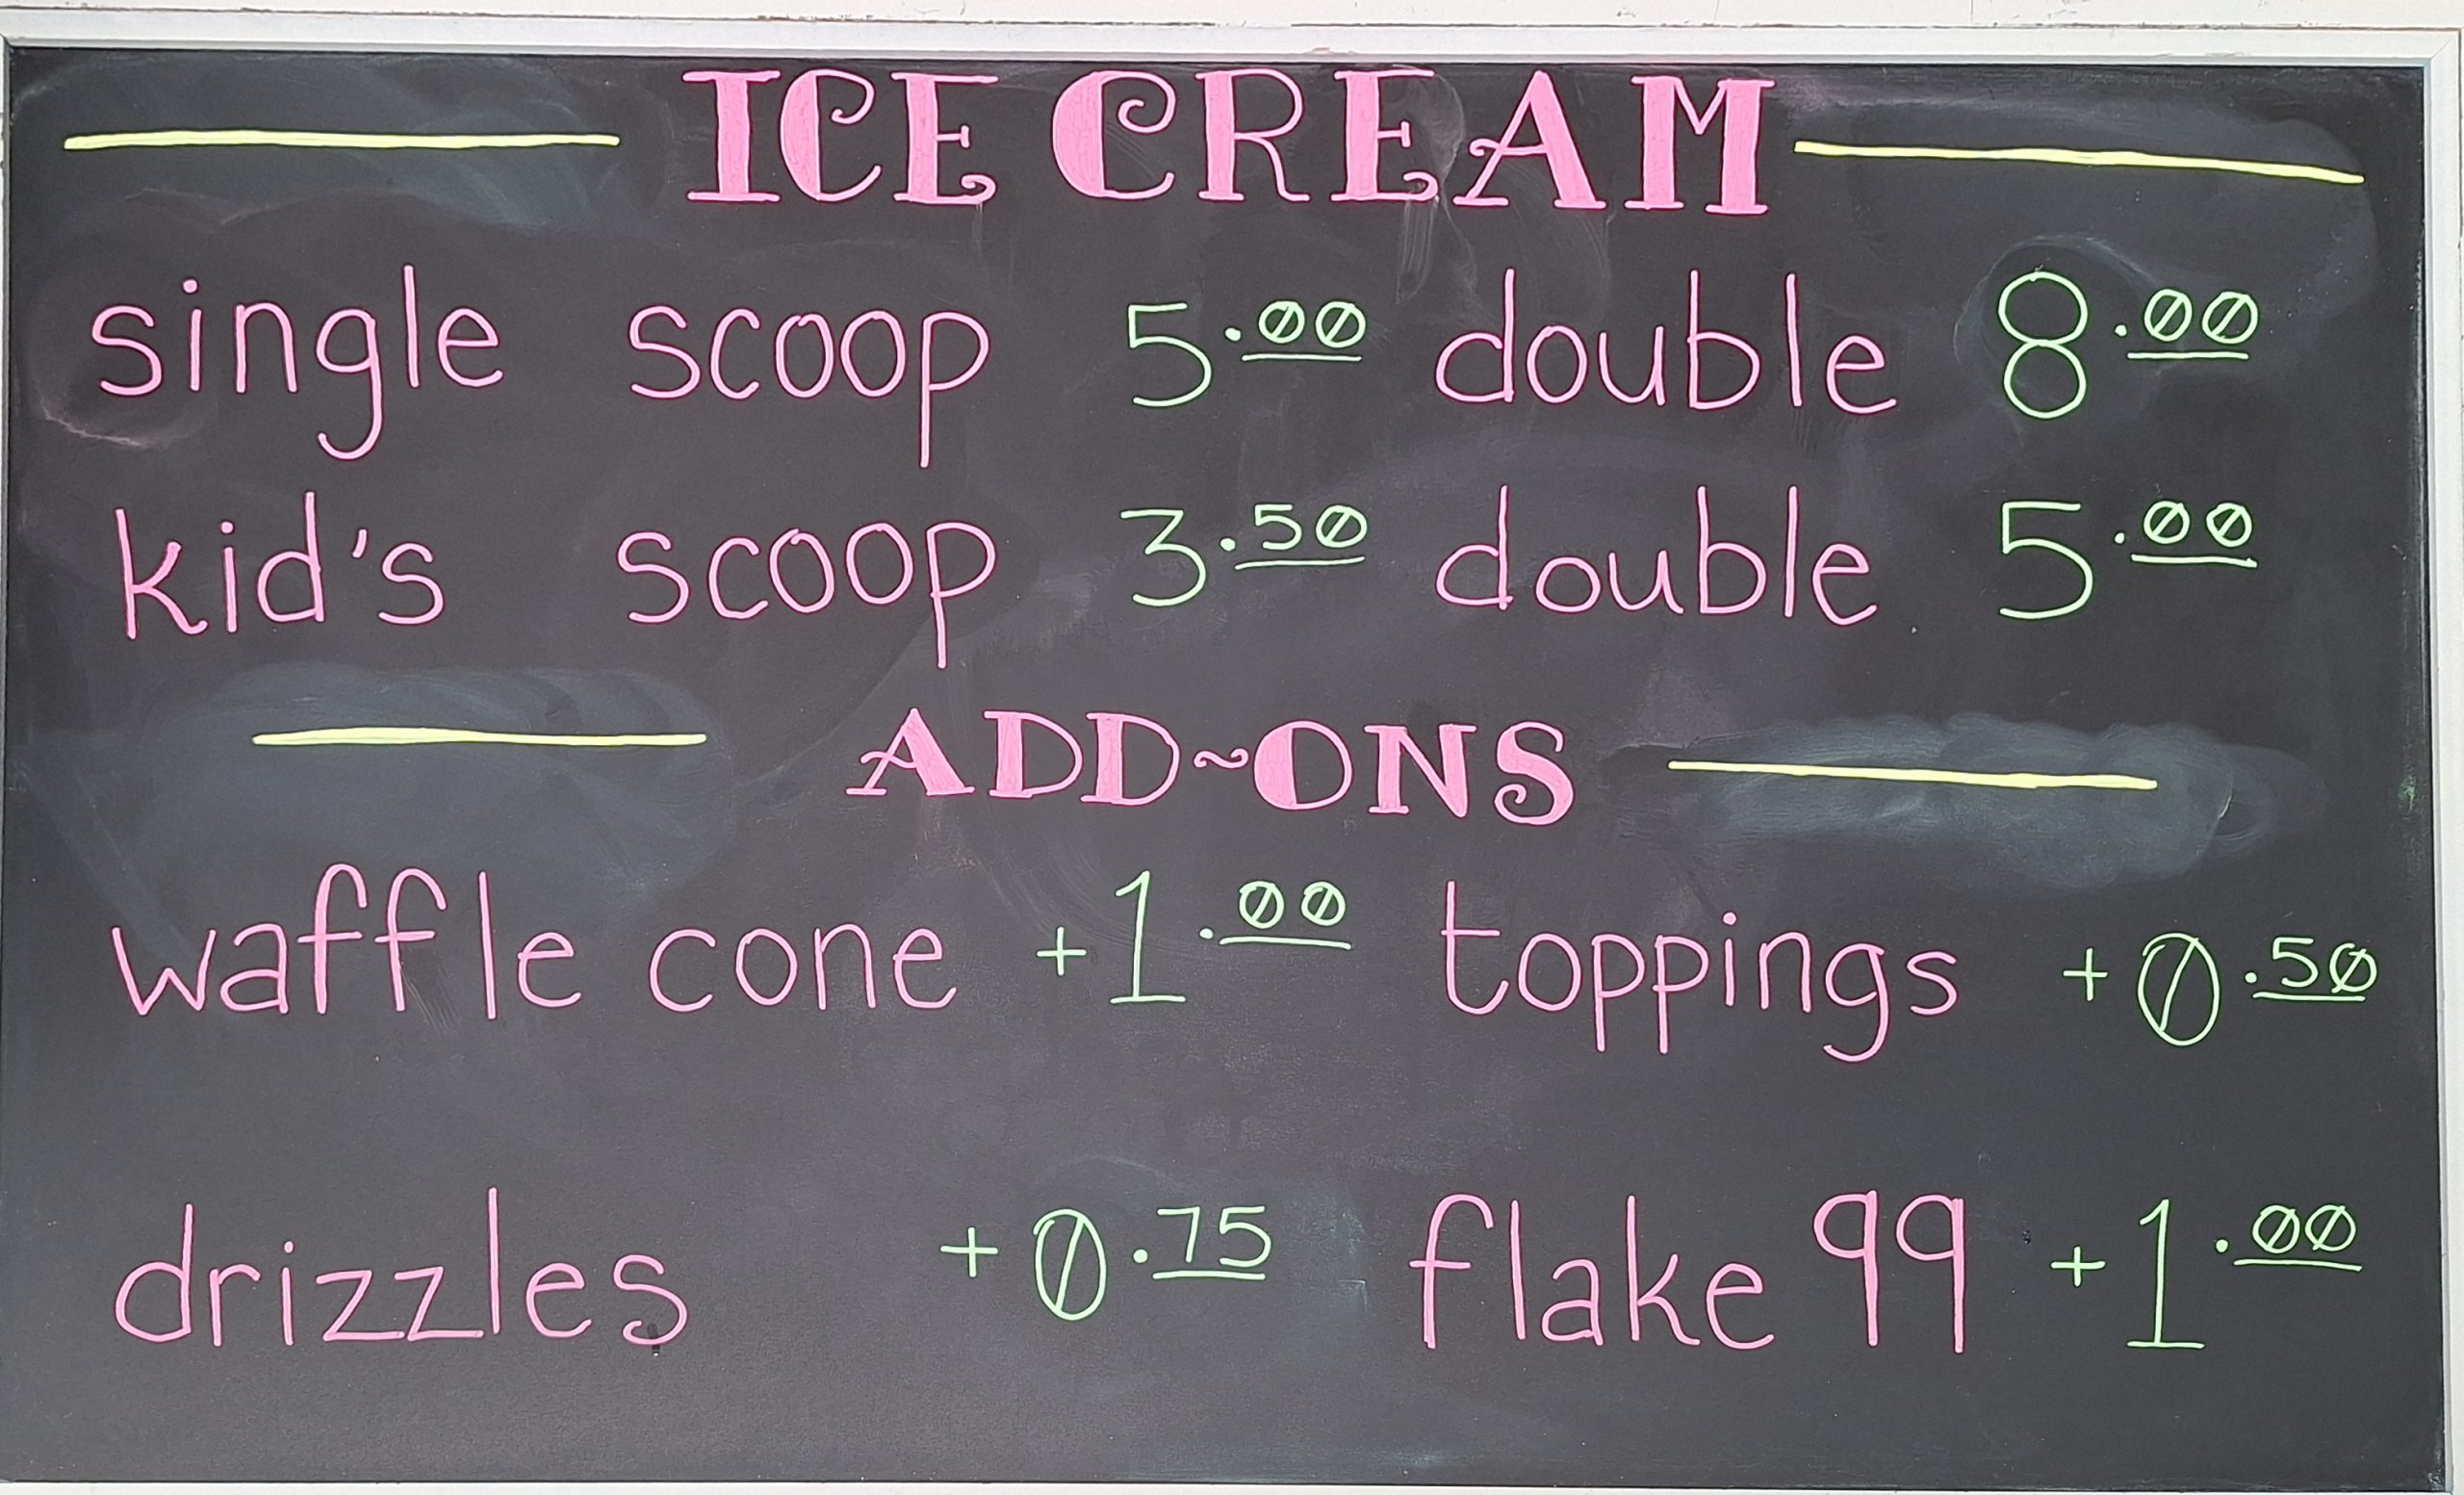 ICE CREAM
single scoop 5.00 double 8.00
kid's scoop 3.50 double 5.00
ADD~ONS
waffle cone +1.00 toppings +0.50
drizzles +0.75 flake 99 +1.00